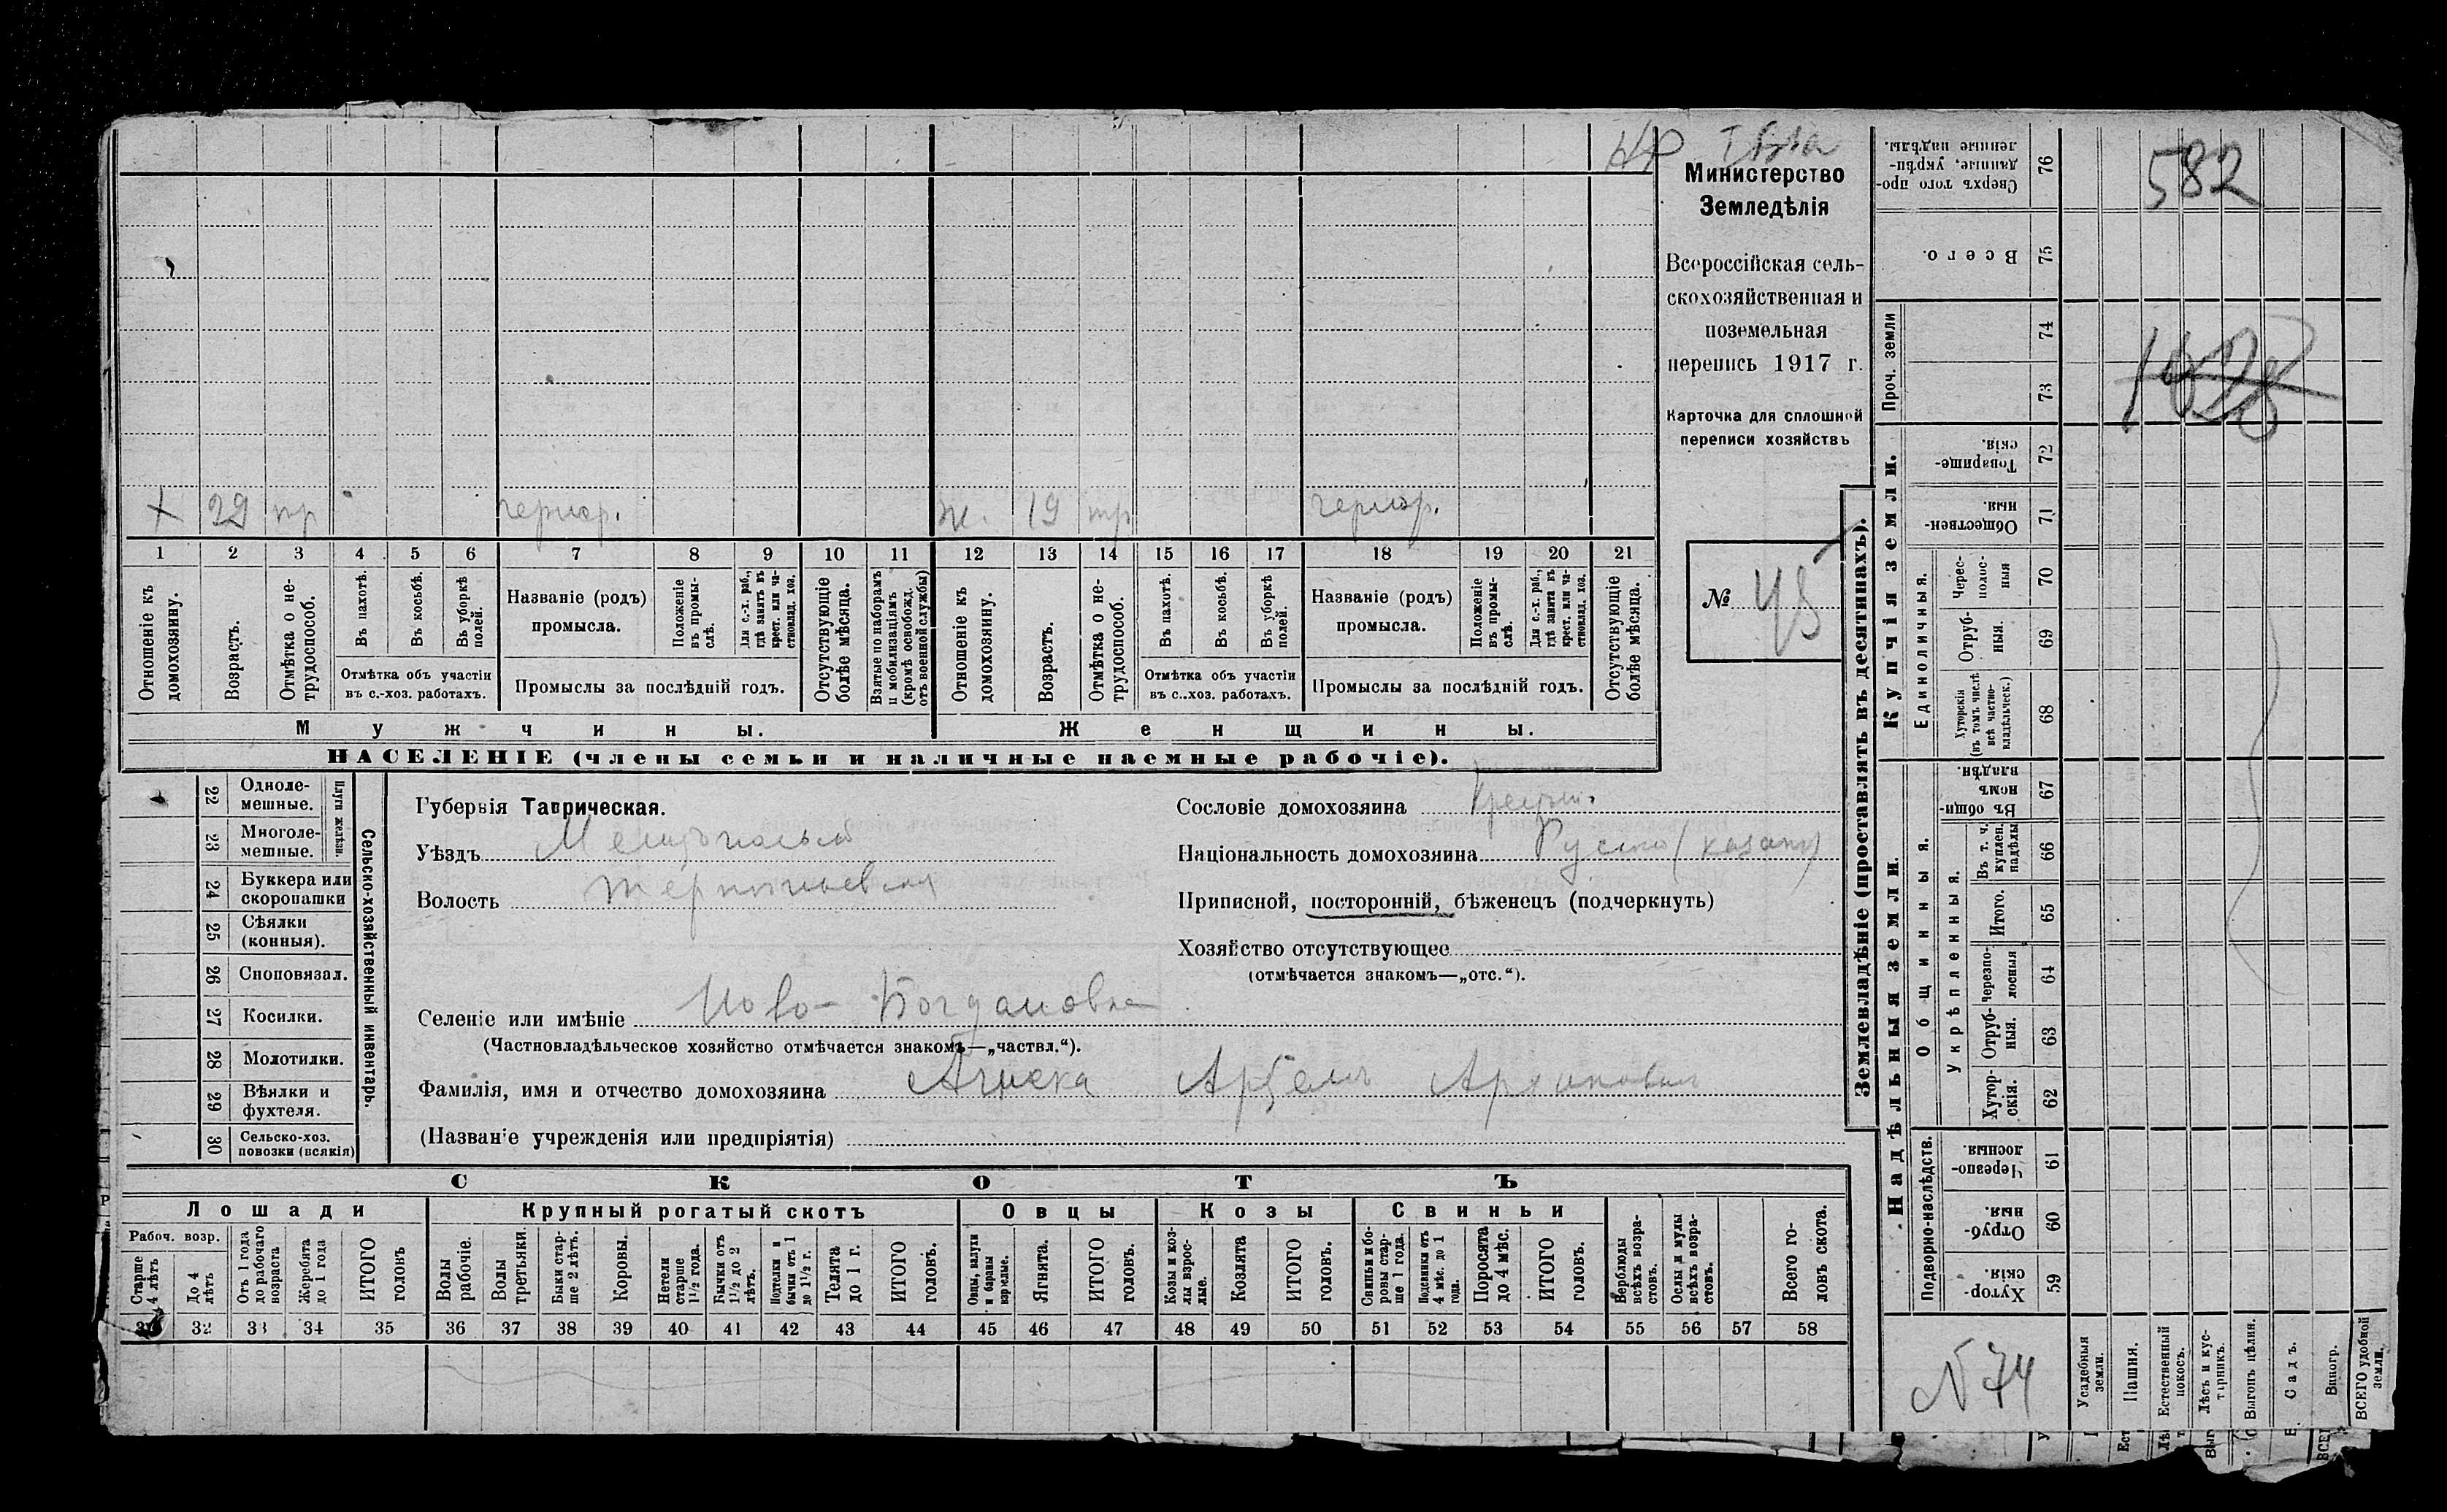 Министерство
Земледѣлія
Всероссійская сель-
скохозяйственная и
поземельная
перепись 1917 г.
Карточка для сплошной
переписи хозяйствъ
№ 45
29 тр чернор. ж. 19 тр чернор.
1 2 3 4 5 6 7 8 9 10 11 12 13 14 15 16 17 18 19 20 21
Отношеніе къ домохозяину.
Возрастъ.
Отмѣтка о не-трудоспособ.
Въ пахотѣ.
Въ косьбѣ.
Въ уборкѣ полей.
Отмѣтка объ участіи
въ с.-хоз. работахъ.
Названіе (родъ)
промысла.
Положеніе въ промы-слѣ.
Для с.-х. раб., гдѣ занятъ въ крест. или ча-стновлад. хоз.
Промыслы за послѣдній годъ.
Отсутствующіе болѣе мѣсяца.
Взятые по наборамъ и мобилизаціямъ (кромѣ освобожд. отъ военной службы)
Отношеніе къ домохозяину.
Возрастъ.
Отмѣтка о не-трудоспособ.
Въ пахотѣ.
Въ косьбѣ.
Въ уборкѣ полей.
Отмѣтка объ участіи
въ с.-хоз. работахъ.
Названіе (родъ)
промысла.
Положеніе въ промы-слѣ.
Для с.-х. раб., гдѣ занята въ крест. или ча-стновлад. хоз.
Промыслы за послѣдній годъ.
Отсутствующіе болѣе мѣсяца.
Мужчины.
Женщины.
НАСЕЛЕНІЕ (члены семьи и наличные наемные рабочіе).
22 Одноле-мешные.
23 Многоле-мешные.
Плуги желѣзн.
24 Буккера или скоропашки
25 Сѣялки (конныя).
26 Сноповязал.
27 Косилки.
28 Молотилки.
29 Вѣялки и фухтеля.
30 Сельско-хоз. повозки (всякія)
Сельско-хозяйственный инвентарь.
Губернія Таврическая.
Уѣздъ
Волость
Сословіе домохозяина
Національность домохозяина
Приписной, посторонній, бѣженецъ (подчеркнуть)
Хозяйство отсутствующее
(отмѣчается знакомъ—„отс.“).
Селеніе или имѣніе Ново-Богдановка
(Частновладѣльческое хозяйство отмѣчается знакомъ—„частвл.“).
Фамилія, имя и отчество домохозяина
(Названіе учрежденія или предпріятія)
СКОТЪ
Лошади Крупный рогатый скотъ Овцы Козы Свиньи
Рабоч. возр.
Старше 4 лѣтъ
До 4 лѣтъ
Отъ 1 года до рабочаго возраста
Жеребята до 1 года
ИТОГО головъ
Волы рабочіе.
Волы третьяки.
Быки стар-ше 2 лѣтъ.
Коровы.
Нетели старше 1½ года.
Бычки отъ 1½ до 2 лѣтъ.
Подтелки и бычки отъ 1 до 1½ г.
Телята до 1 г.
ИТОГО головъ.
Овцы, валухи и бараны взрослые.
Ягнята.
ИТОГО головъ.
Козы и коз-лы взрос-лые.
Козлята
ИТОГО головъ.
Свиньи и бо-ровы стар-ше 1 года.
Подсвинки отъ 4 мѣс. до 1 года.
Поросята до 4 мѣс.
ИТОГО головъ.
Верблюды всѣхъ возра-стовъ.
Ослы и мулы всѣхъ возра-стовъ.
Всего го-ловъ скота.
32 33 34 35 36 37 38 39 40 41 42 43 44 45 46 47 48 49 50 51 52 53 54 55 56 57 58
Землевладѣніе (проставлять въ десятинахъ).
Купчія земли.
Надѣльныя земли.
Сверхъ того про-данные, укрѣп-ленные надѣлы. 76
Всего. 75
Проч. земли 74 73
Товарище-скія. 72
Обществен-ныя. 71
Единоличныя.
Черес-полос-ныя 70
Отруб-ныя. 69
Хуторскія (въ томъ числѣ всѣ частно-владѣльческ.) 68
Общинныя.
Въ общи-номъ владѣн. 67
Въ т. ч. куплен. надѣлы 66
Укрѣпленныя.
Итого. 65
Черезпо-лосныя 64
Отруб-ныя. 63
Хутор-скія. 62
Подворно-наслѣдств.
Черезпо-лосныя. 61
Отруб-ныя. 60
Хутор-скія. 59
582
N 74
Усадебныя земли.
Пашня.
Естественный покосъ.
Лѣсъ и кус-тарникъ.
Выгонъ цѣлин.
Садъ.
Виногр.
ВСЕГО удобной земли.